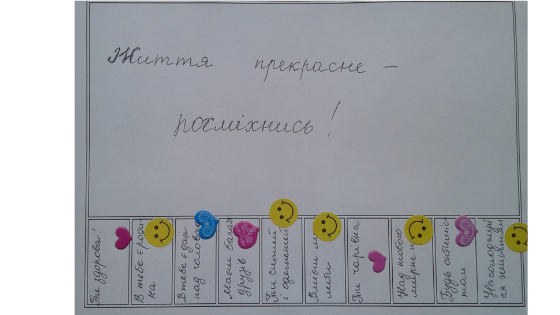 Життя прекрасне –
посміхнись!
Ти здорова!
В тебе є роди-
на
В тебе є дах
над головою
Маєш багато
друзів
Ти ситий
і одягнений
Вмієш
Ти чарівна
Над тобою
мирне
Будь оптиміс-
том
Насолоджуйся
життям